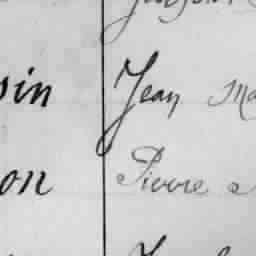 sin Jean Ma
on Pierre